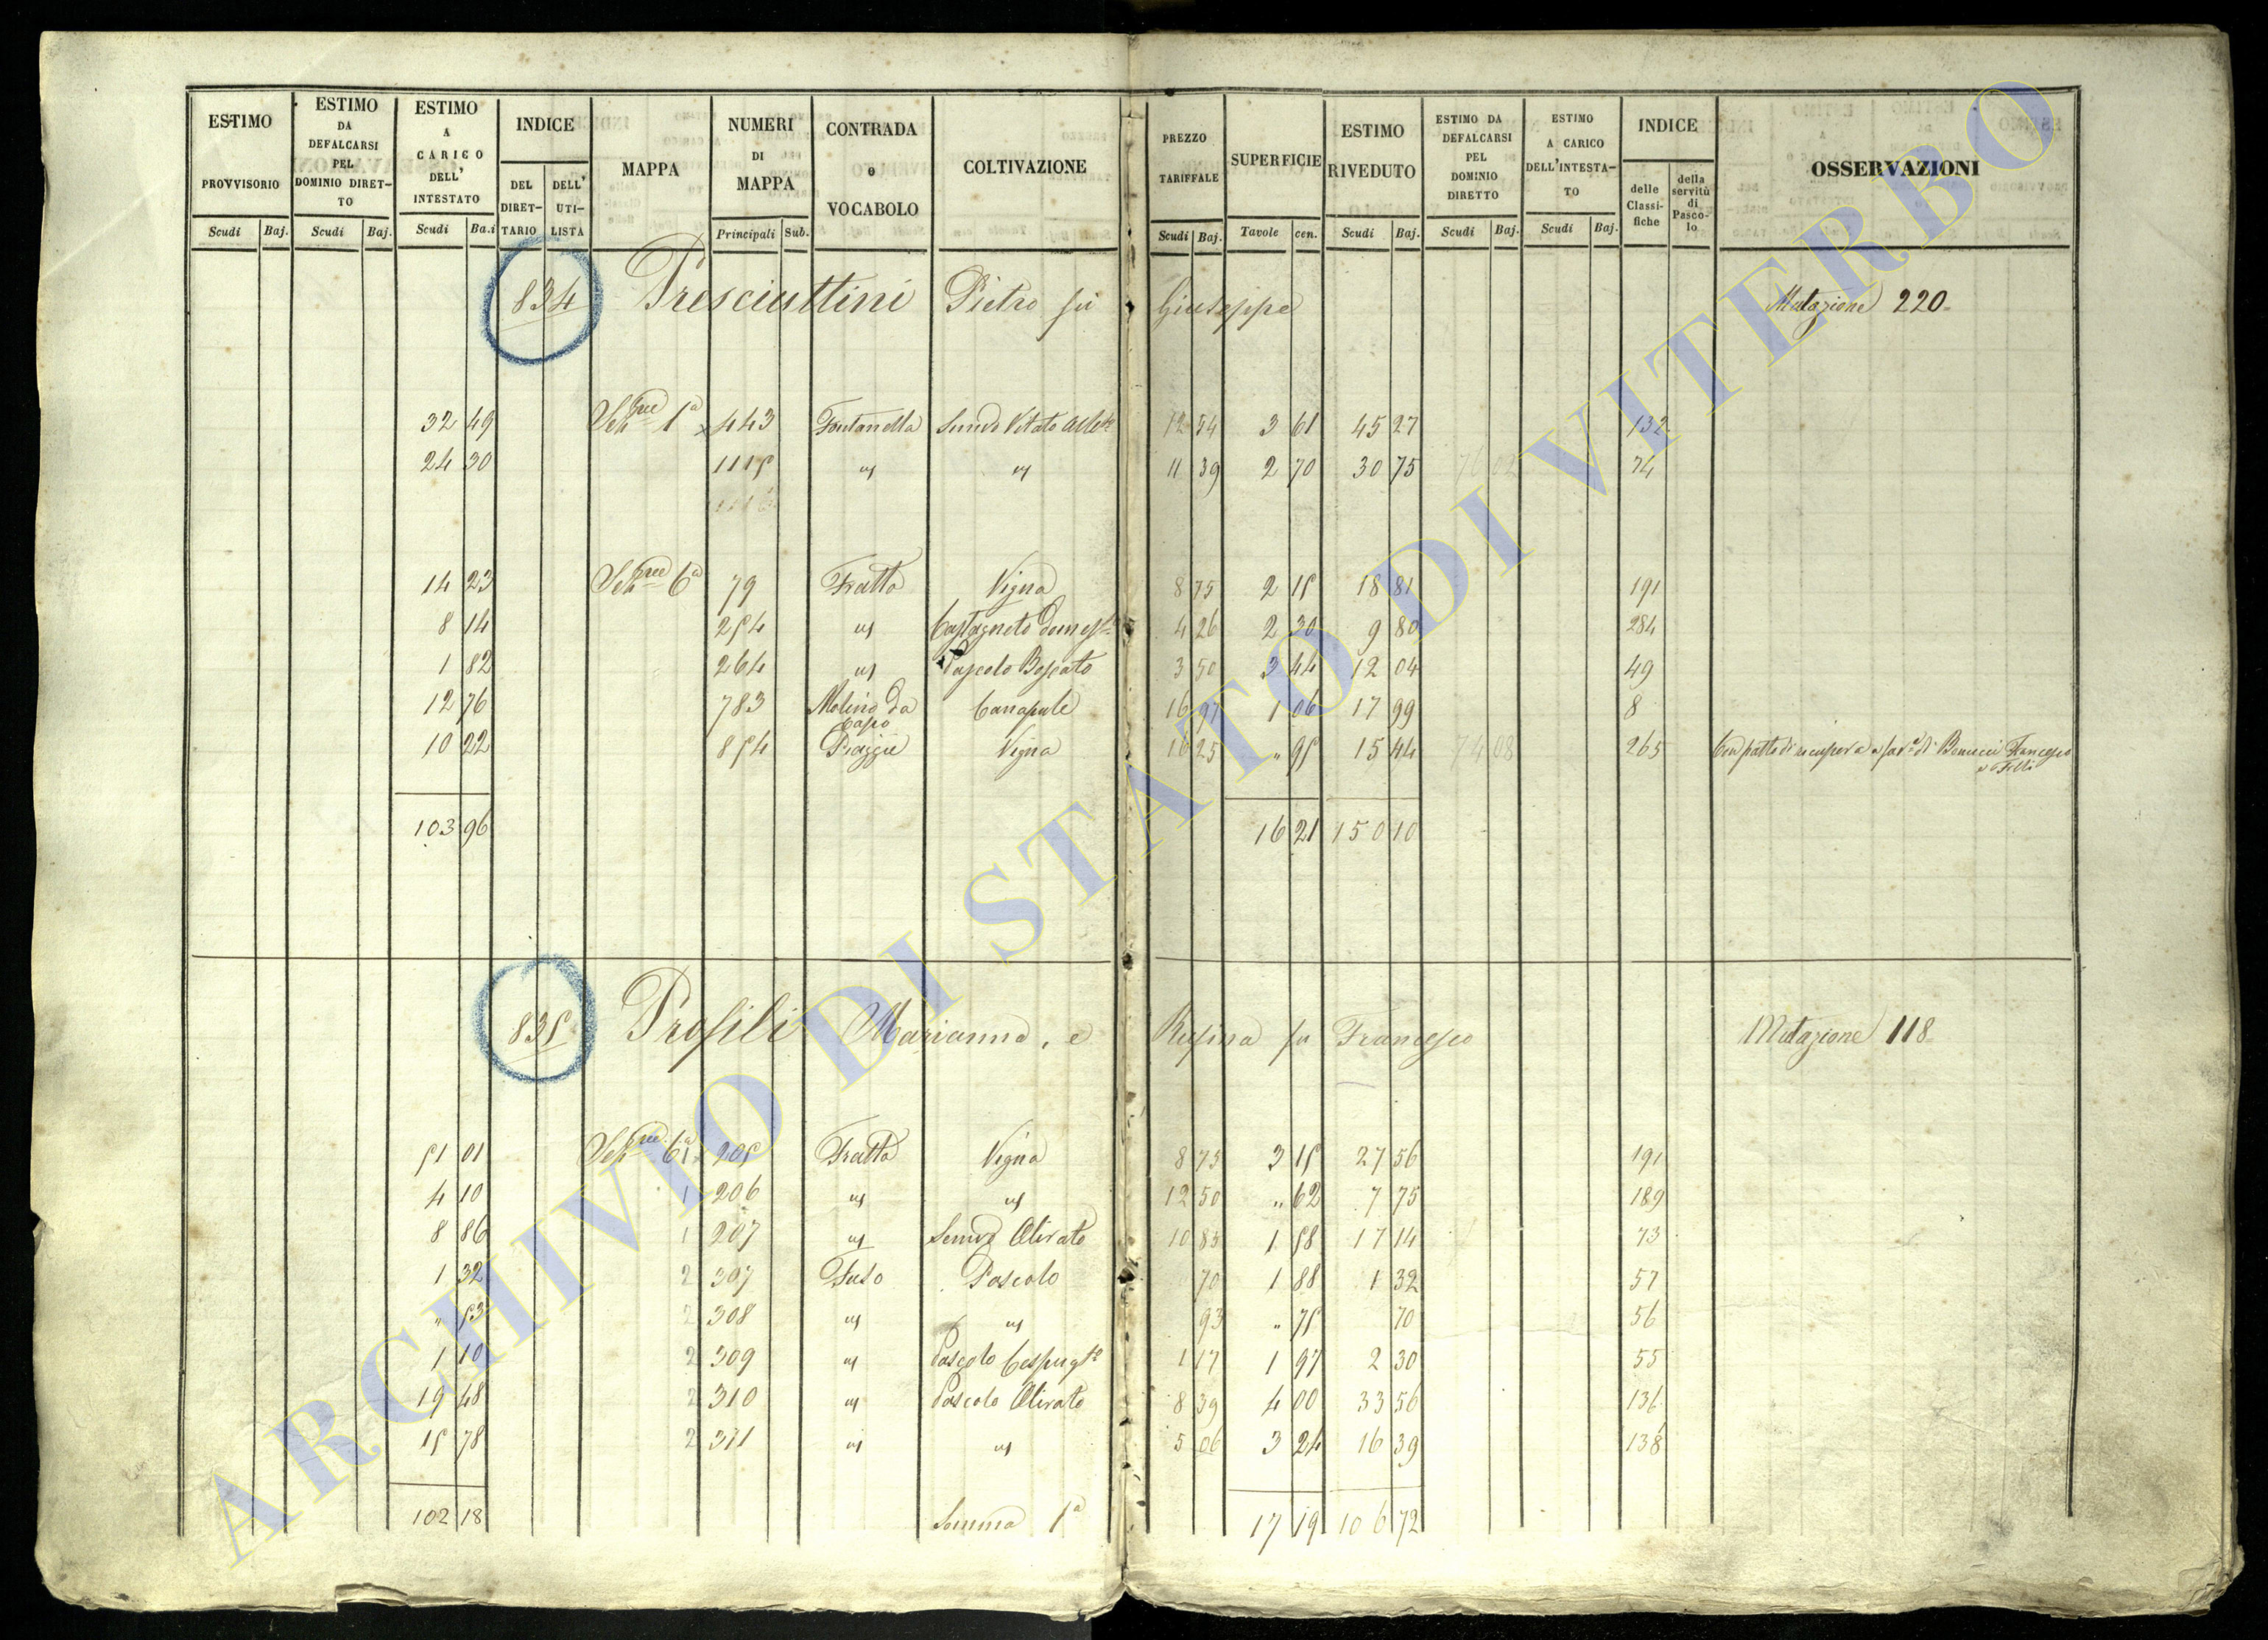 ESTIMO PROVVISORIO Scudi Baj.
ESTIMO DA DEFALCARSI PEL DOMINIO DIRET-TO Scudi Baj.
ESTIMO A CARICO DELL' INTESTATO Scudi Ba.i
INDICE DEL DIRET-TARIO DELL' UTI-LISTA
MAPPA
NUMERI DI MAPPA Principali Sub.
CONTRADA e VOCABOLO
COLTIVAZIONE
PREZZO TARIFFALE Scudi Baj.
SUPERFICIE Tavole cen.
ESTIMO RIVEDUTO Scudi Baj.
ESTIMO DA DEFALCARSI PEL DOMINIO DIRETTO Scudi Baj.
ESTIMO A CARICO DELL'INTESTA-TO Scudi Baj.
INDICE delle Classi-fiche della servitù di Pasco-lo
OSSERVAZIONI
834 Presciuttini Pietro fu Giuseppe Mutazione 220
32 49 1ª 443 Fontanella Semvo Vitato 12 54 3 61 45 27 132
24 30 1115 " " 11 39 2 70 30 75 74
14 23 6ª 79 Fratta Vigna 8 75 2 15 18 81 191
8 14 254 " Castagneto domest. 4 26 2 30 9 80 284
1 82 264 " Pascolo Boscato 3 50 3 44 12 04 49
12 76 783 Molino da Capo Canapule 16 97 1 06 17 99 8
10 22 854 Piaggie Vigna 16 25 " 95 15 44 74 08 265 Con patto di recupera a fav.e di Bonucci Francesco
e Felli
103 96 16 21 150 10
835 Prosili Marianna, e Rufina fu Francesco Mutazione 118
51 01 6ª 1 205 Fratta Vigna 8 75 3 15 27 56 191
4 10 1 206 " " 12 50 " 62 7 75 189
8 86 1 207 " Semvo Olivato 10 85 1 58 17 14 73
1 32 2 307 Fuso Pascolo 70 1 88 1 32 57
" 53 2 308 " " 93 " 75 70 56
1 10 2 309 " Pascolo Cespugto 1 17 1 97 2 30 55
19 48 2 310 " Pascolo Olivato 8 39 4 00 33 56 136
15 78 2 311 " " 5 06 3 24 16 39 138
102 18 Somma 1ª 17 19 106 72
ARCHIVIO DI STATO DI VITERBO